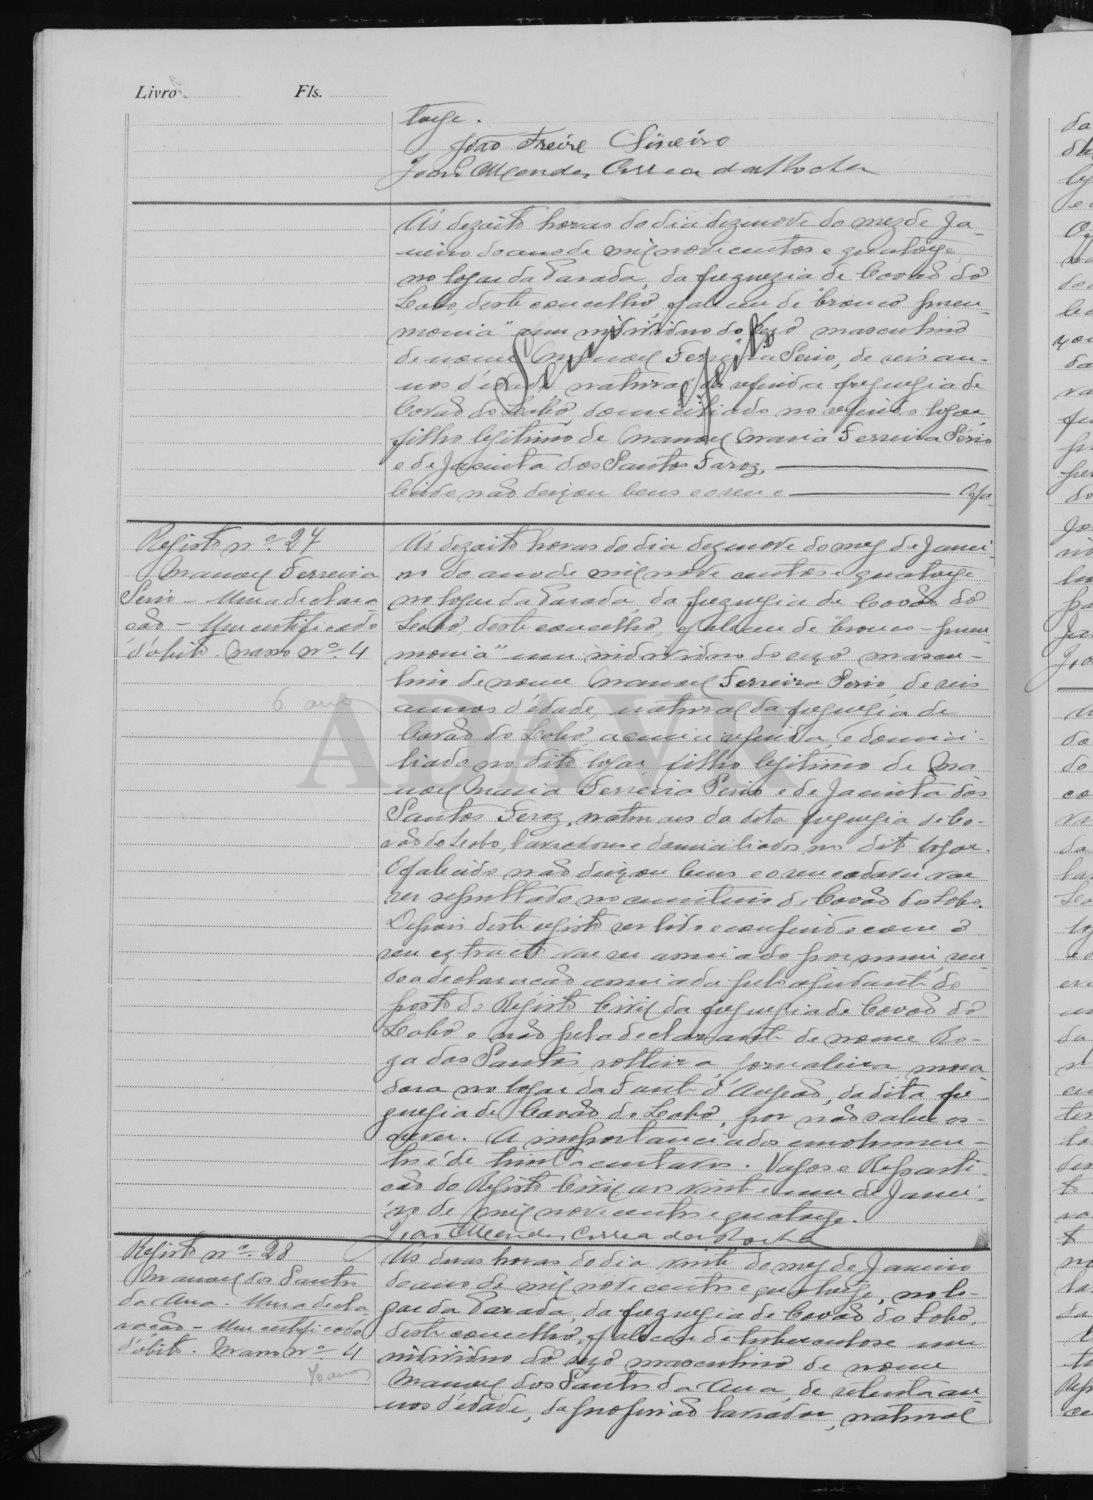 Livro Fls.
torze.
João Freire Sineiro
João Mendes Correa da Rocha
Ás dezoito horas do dia dezenove do mez de Ja-
neiro do anno de mil novecentos e quatorze,
no logar da Parada, da freguezia de Covão do
Lobo, deste concelho, faleceu de "bronco-pneu-
monia" um individuo do sexo masculino
de nome Manoel Ferreira Serio, de seis an-
nos d'edade natural da referida freguezia de
Covão do Lobo domiciliado no referido logar
filho legitimo de Manoel Maria Ferreira Serio
e de Jacinta dos Santos Faroz,
lecido não deixou bens e o seu c Ofa-
Sem efeito
Registo nº 27
Manoel Ferreira
Serio - Uma declara
ção - Um certificado
d'obito. Maço nº 4
6 anos
Ás dezoito horas do dia dezenove do mez de Janei-
ro do anno de mil nove centos e quatorze
no logar da Parada, da freguezia de Covão do
Lobo, deste concelho, faleceu de "bronco-pneu
monia" um individuo do sexo mascu-
lino de nome Manoel Ferreira Serio, de seis
annos d'edade, natural da freguezia de
Covão do Lobo acima referida e domici-
liado no dito logar filho legitimo de Ma
noel Maria Ferreira Serio e de Jacinta dos
Santos Feroz, naturaes da dita freguezia de Co-
vão do Lobo, lavradores e domiciliados no dito logar.
O falecido não deixou bens e o seu cadaver vae
ser sepultado no cemiterio de Covão do Lobo.
Depois deste registo ser lido e conferido com o
seu extracto vae ser assinado por mim sen
do a declaração assinada pelo ajudante do
posto do Registo Civil da freguezia de Covão do
Lobo e não pela declarante de nome Ro-
za dos Santos, solteira, jornaleira, mora
dora no logar da Fonte d'Angeão, da dita fre
guezia de Covão do Lobo, por não saber es-
crever. A importancia dos emolumen-
tos é de trinta centavos. Vagos e Reparti-
ção do Registo Civil aos vinte e um de Janei-
ro de mil nove centos e quatorze.
João Mendes Correa da Rocha
Registo nº 28
Manoel dos Santos
da Ana. Uma decla
ração - Um certificado
d'obito. Maço nº 4
70 anos
Ás duas horas do dia vinte do mez de Janeiro
do anno de mil nove centos e quatorze, no lo-
gar da Parada, da freguezia de Covão do Lobo,
deste concelho, faleceu de tuberculose um
individuo do sexo masculino de nome
Manoel dos Santos da Ana, de setenta an-
nos d'edade, de profissão lavrador, natural
ADAVR